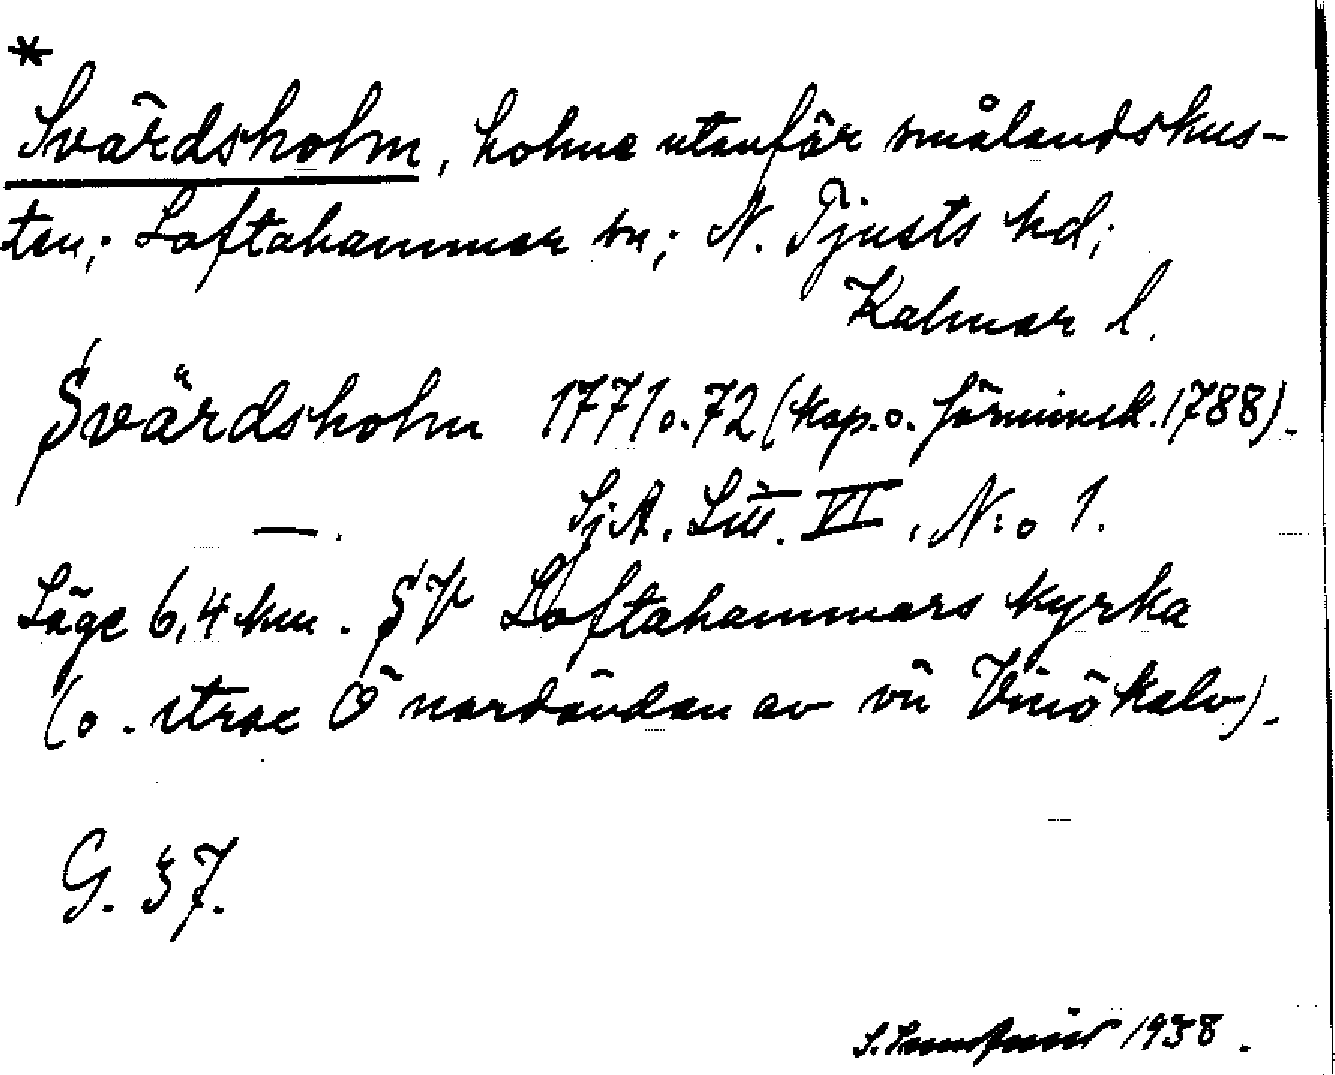 *
Svärdsholm, holme utanför smålandskus-
ten; Loftahammar sn; N. Tjusts hd;
Kalmar l.
Svärdsholm 1771 o. 72 (kop. o. förminsk. 1788).
—. SjA. Litt. VI, N:o 1.
Läge 6,4 km. SV Loftahammars kyrka
(o. strax Ö nordändan av ön Vinökalv).
G. 37.
1938.